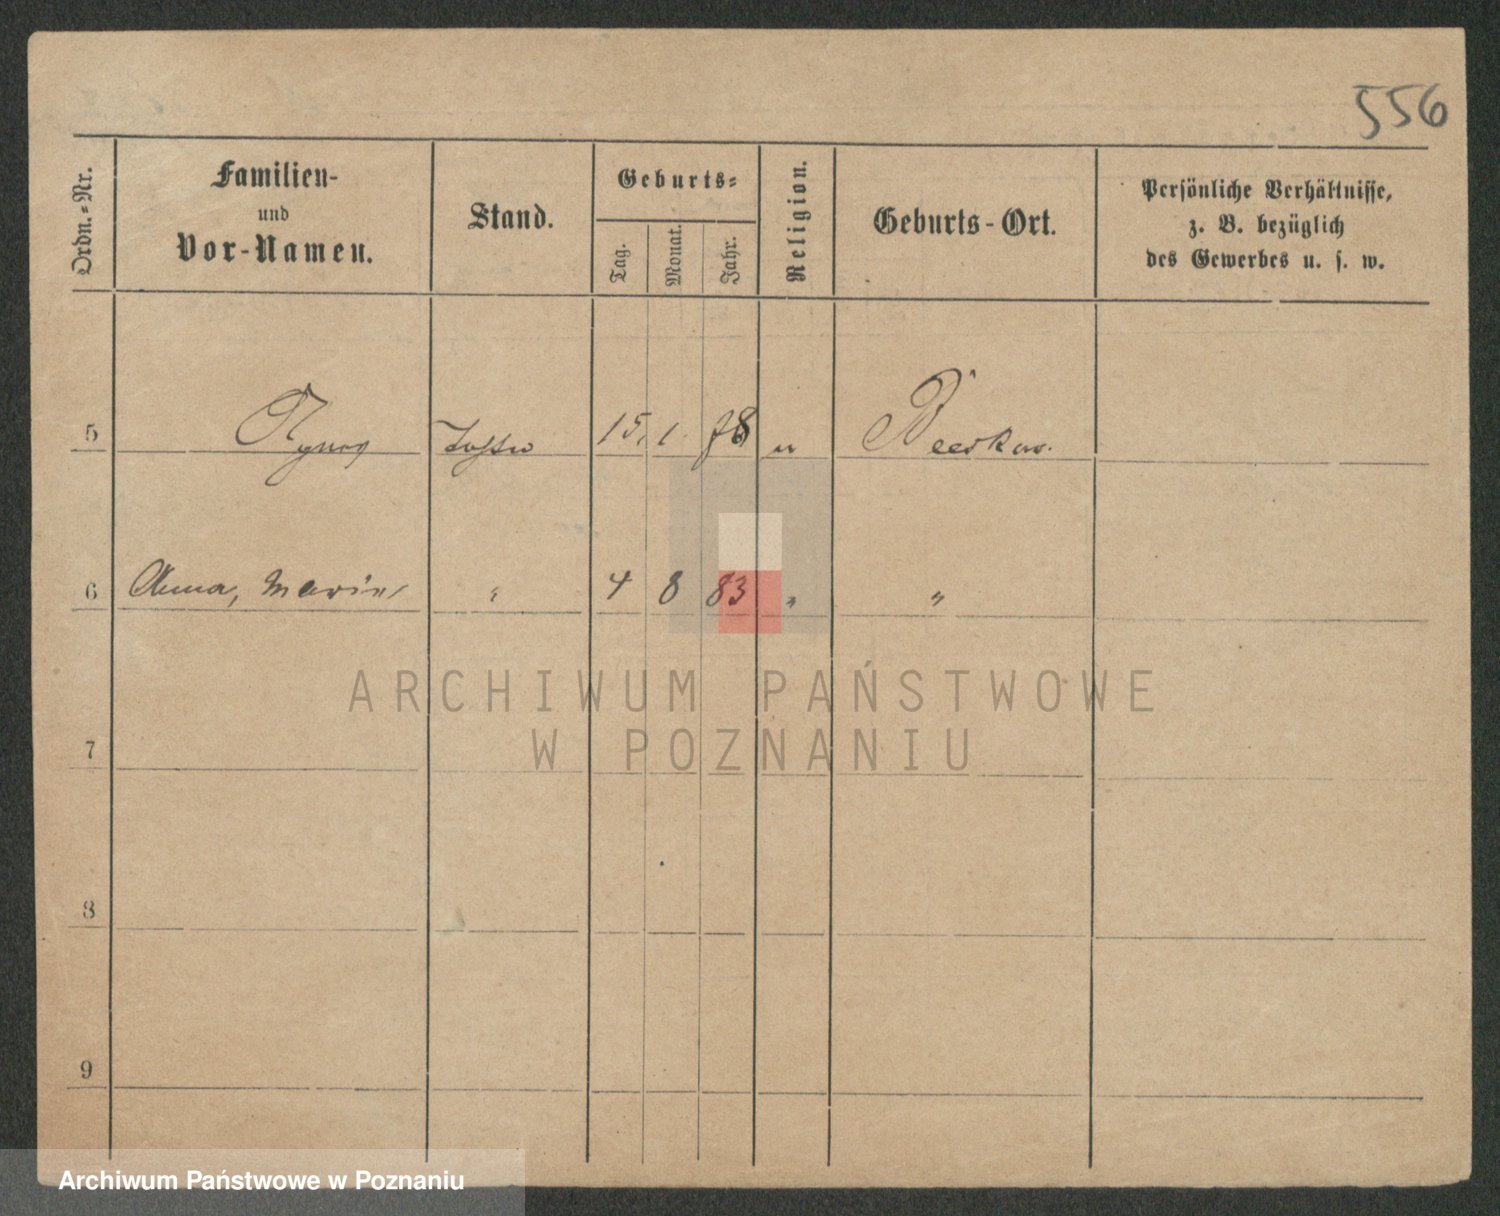 556
Ordn.-Nr.
Familien-
und
Vor-Namen.
Stand.
Geburts-
Tag.
Monat.
Jahr.
Religion.
Geburts-Ort.
Persönliche Verhältnisse,
z. B. bezüglich
des Gewerbes u. s. w.
5 15. 1. 78 "
6 Anna, Marie " 4 8 83 " "
7
8
9
ARCHIWUM PAŃSTWOWE
W POZNANIU
Archiwum Państwowe w Poznaniu